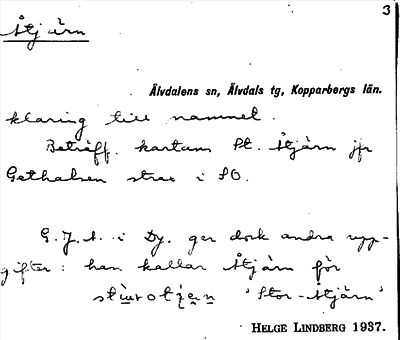 3
Åtjärn
Älvdalens sn, Älvdals tg, Kopparbergs län.
klaring till namnet.
Beträff. kartans St. Åtjärn jfr
Gethalsen strax i SO.
G. J. A. i Dy. ger dock andra upp-
gifter: han kallar Åtjärn för
'Stor-Åtjärn'
HELGE LINDBERG 1937.